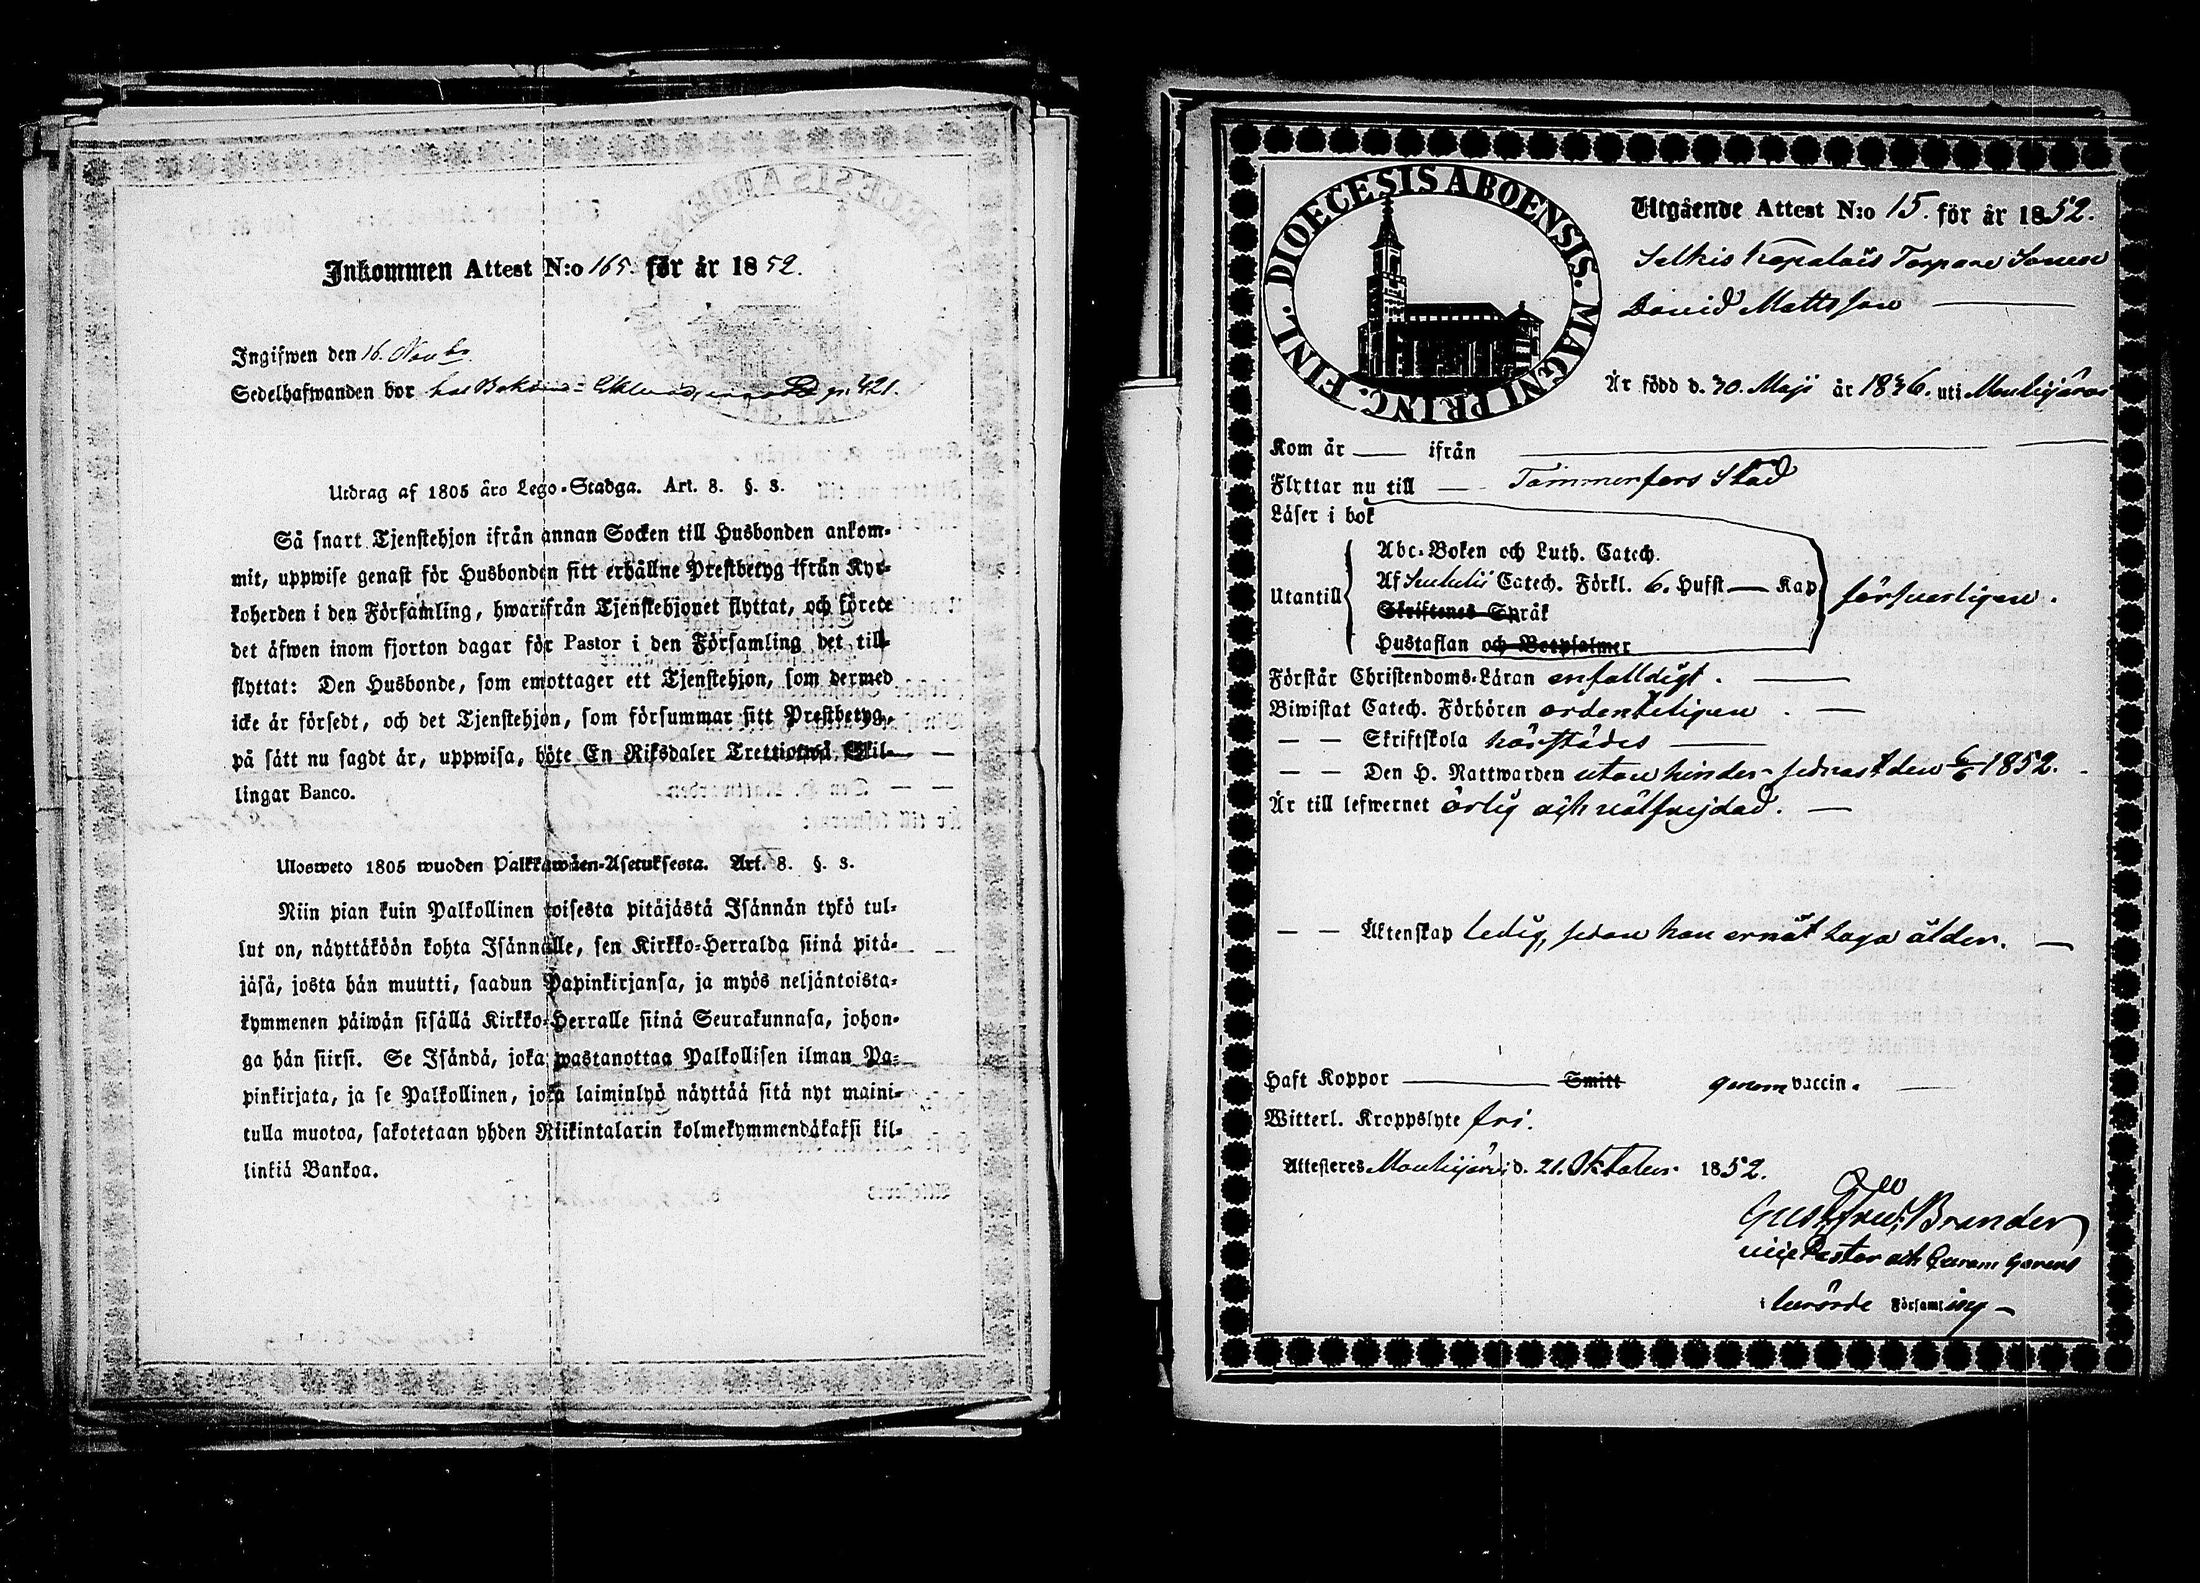 Inkommen Attest N:o 165. för år 1852.
Ingifwen den 16. Novbr
Sedelhafwanden bor hos pg. 421.
Utdrag af 1805 års Lego-Stadga. Art. 8. §. 3.
Så snart Tjenstehjon ifrån annan Socken till Husbonden ankom-
mit, uppwise genast för Husbonden sitt erhållne Prestbetyg ifrån Kyr-
koherden i den Församling, hwarifrån Tjenstehjonet flyttat, och förete
det äfwen inom fjorton dagar för Pastor i den Församling det till-
flyttat: Den Husbonde, som emottager ett Tjenstehjon, som dermed
icke är försedt, och det Tjenstehjon, som försummar sitt Prestbetyg,
på sätt nu sagdt är, uppwisa, böte En Riksdaler Trettiotwå Skil-
lingar Banco.
Ulosweto 1805 wuoden Palkkawäen-Asetuksesta. Art. 8. §. 3.
Niin pian kuin Palkollinen toisesta pitäjästä Isännän tykö tul-
lut on, näyttäköön kohta Isännälle, sen Kirkko-Herralda siinä pitä-
jäsä, josta hän muutti, saadun Papinkirjansa, ja myös neljäntoista-
kymmenen päiwän sisällä Kirkko-Herralle siinä Seurakunnasa, johon-
ga hän siirsi. Se Isändä, joka wastanottaa Palkollisen ilman Pa-
pinkirjata, ja se Palkollinen, joka laiminlyö näyttää sitä nyt maini-
tulla muotoa, sakotetaan yhden Riikintalarin kolmekymmendäkaksi kil-
linkiä Bankoa.
DIOECESIS ABOENSIS. MAGNI PRINC. FINL.
Utgående Attest N:o 15. för år 1852.
Selkis Torpare Sonen
David Mattsson
Är född d. 30. Maji år 1836. uti Mouhijärvi
Kom år ifrån
Flyttar nu till Tammerfors Stad
Läser i bok
Abc-Boken och Luth. Catech.
Utantill Af Catech. Förkl. 6. Hufst Kap försvarligen.
Skriftenes Språk
Hustaflan och Botpsalmer
Förstår Christendoms-Läran enfalldigt.
Biwistat Catech. Förhören ordenteligen.
— — Skriftskola härstädes
— — Den H. Nattwarden utan hinder sednast den 6/6 1852.
Är till lefwernet ärlig och välfrejdad.
— — Äktenskap ledig, sedan han ernåt laga ålder.
Haft Koppor Smitt genom vaccin.
Witterl. Kroppslyte fri.
Attesteres Mouhijärvi d. 21. Oktober 1852.
Brander
vice Pastor och
i berörde Församling